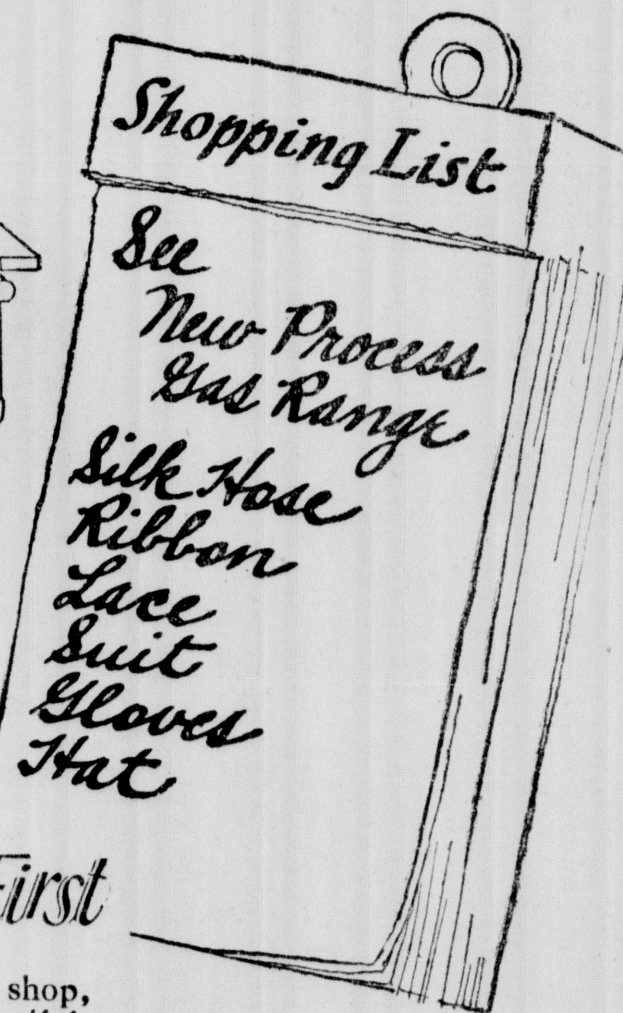 Shopping List
See
New Process
Gas Range
Silk Hose
Ribbon
Lace
Suit
Gloves
Hat
First
shop,